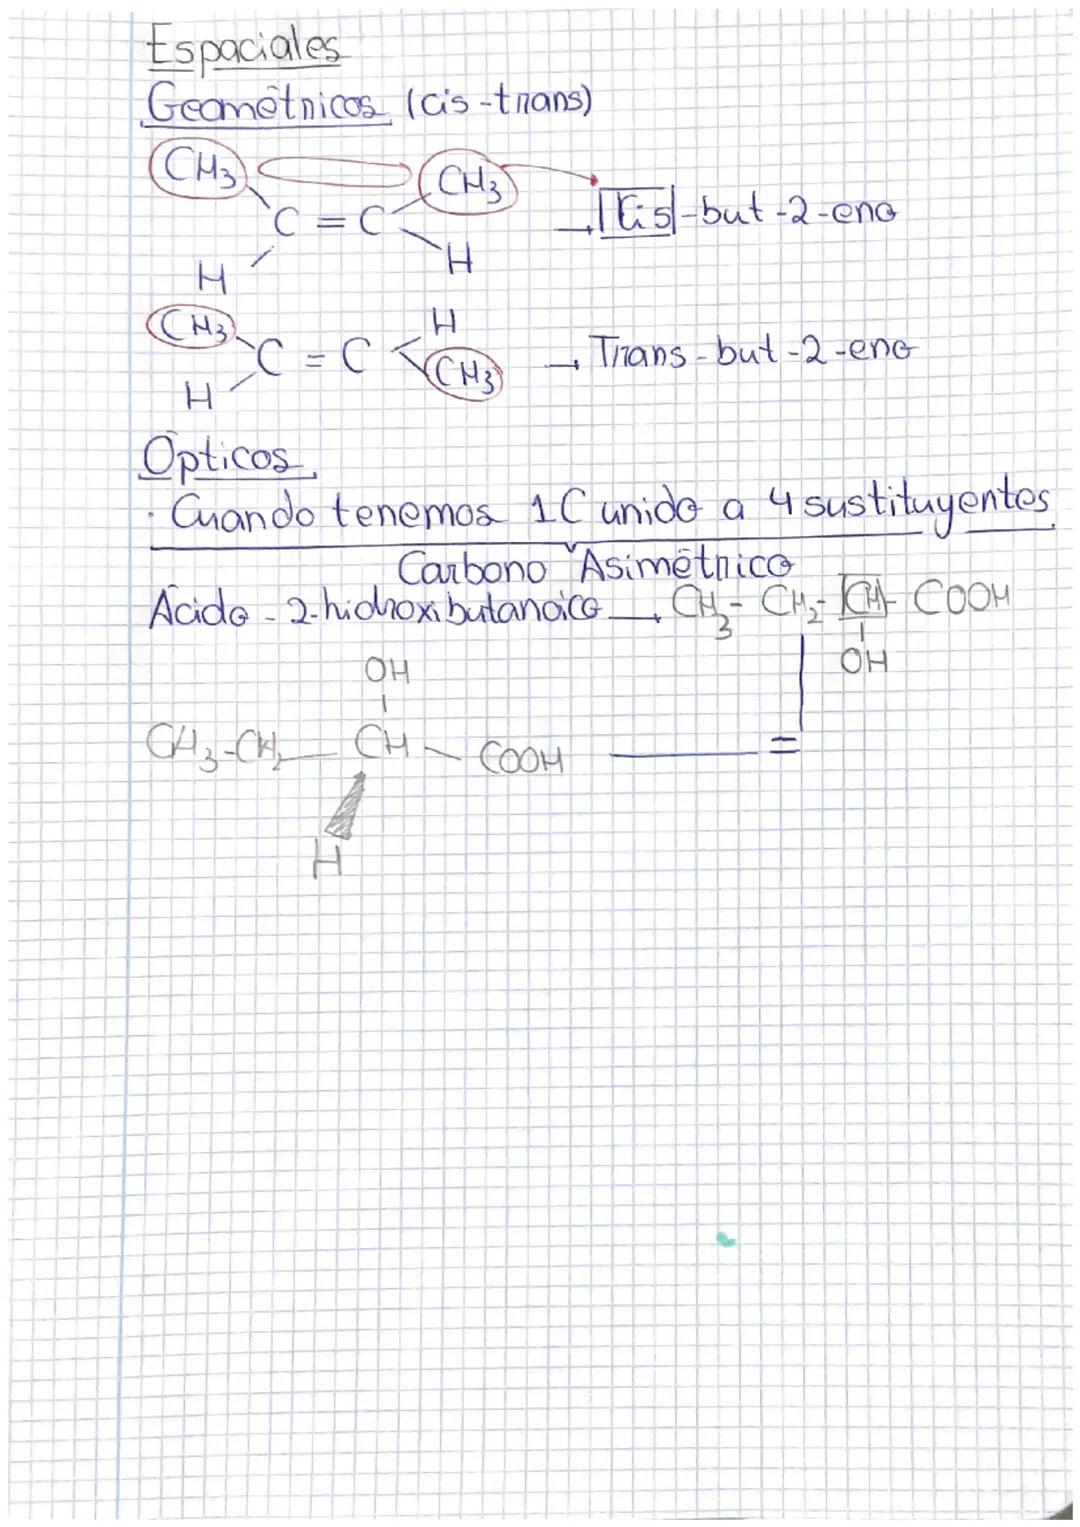 Espaciales
Geométricos (cis-trans)
CH3 CH3
C = C → Cis-but-2-eno
H H
CH3 H
C = C → Trans-but-2-eno
H CH3
Ópticos
· Cuando tenemos 1C unido a 4 sustituyentes
Carbono Asimétrico
Ácido-2-hidroxibutanoico → CH3-CH2-CH-COOH
OH
OH
CH3-CH2-CH-COOH =
H